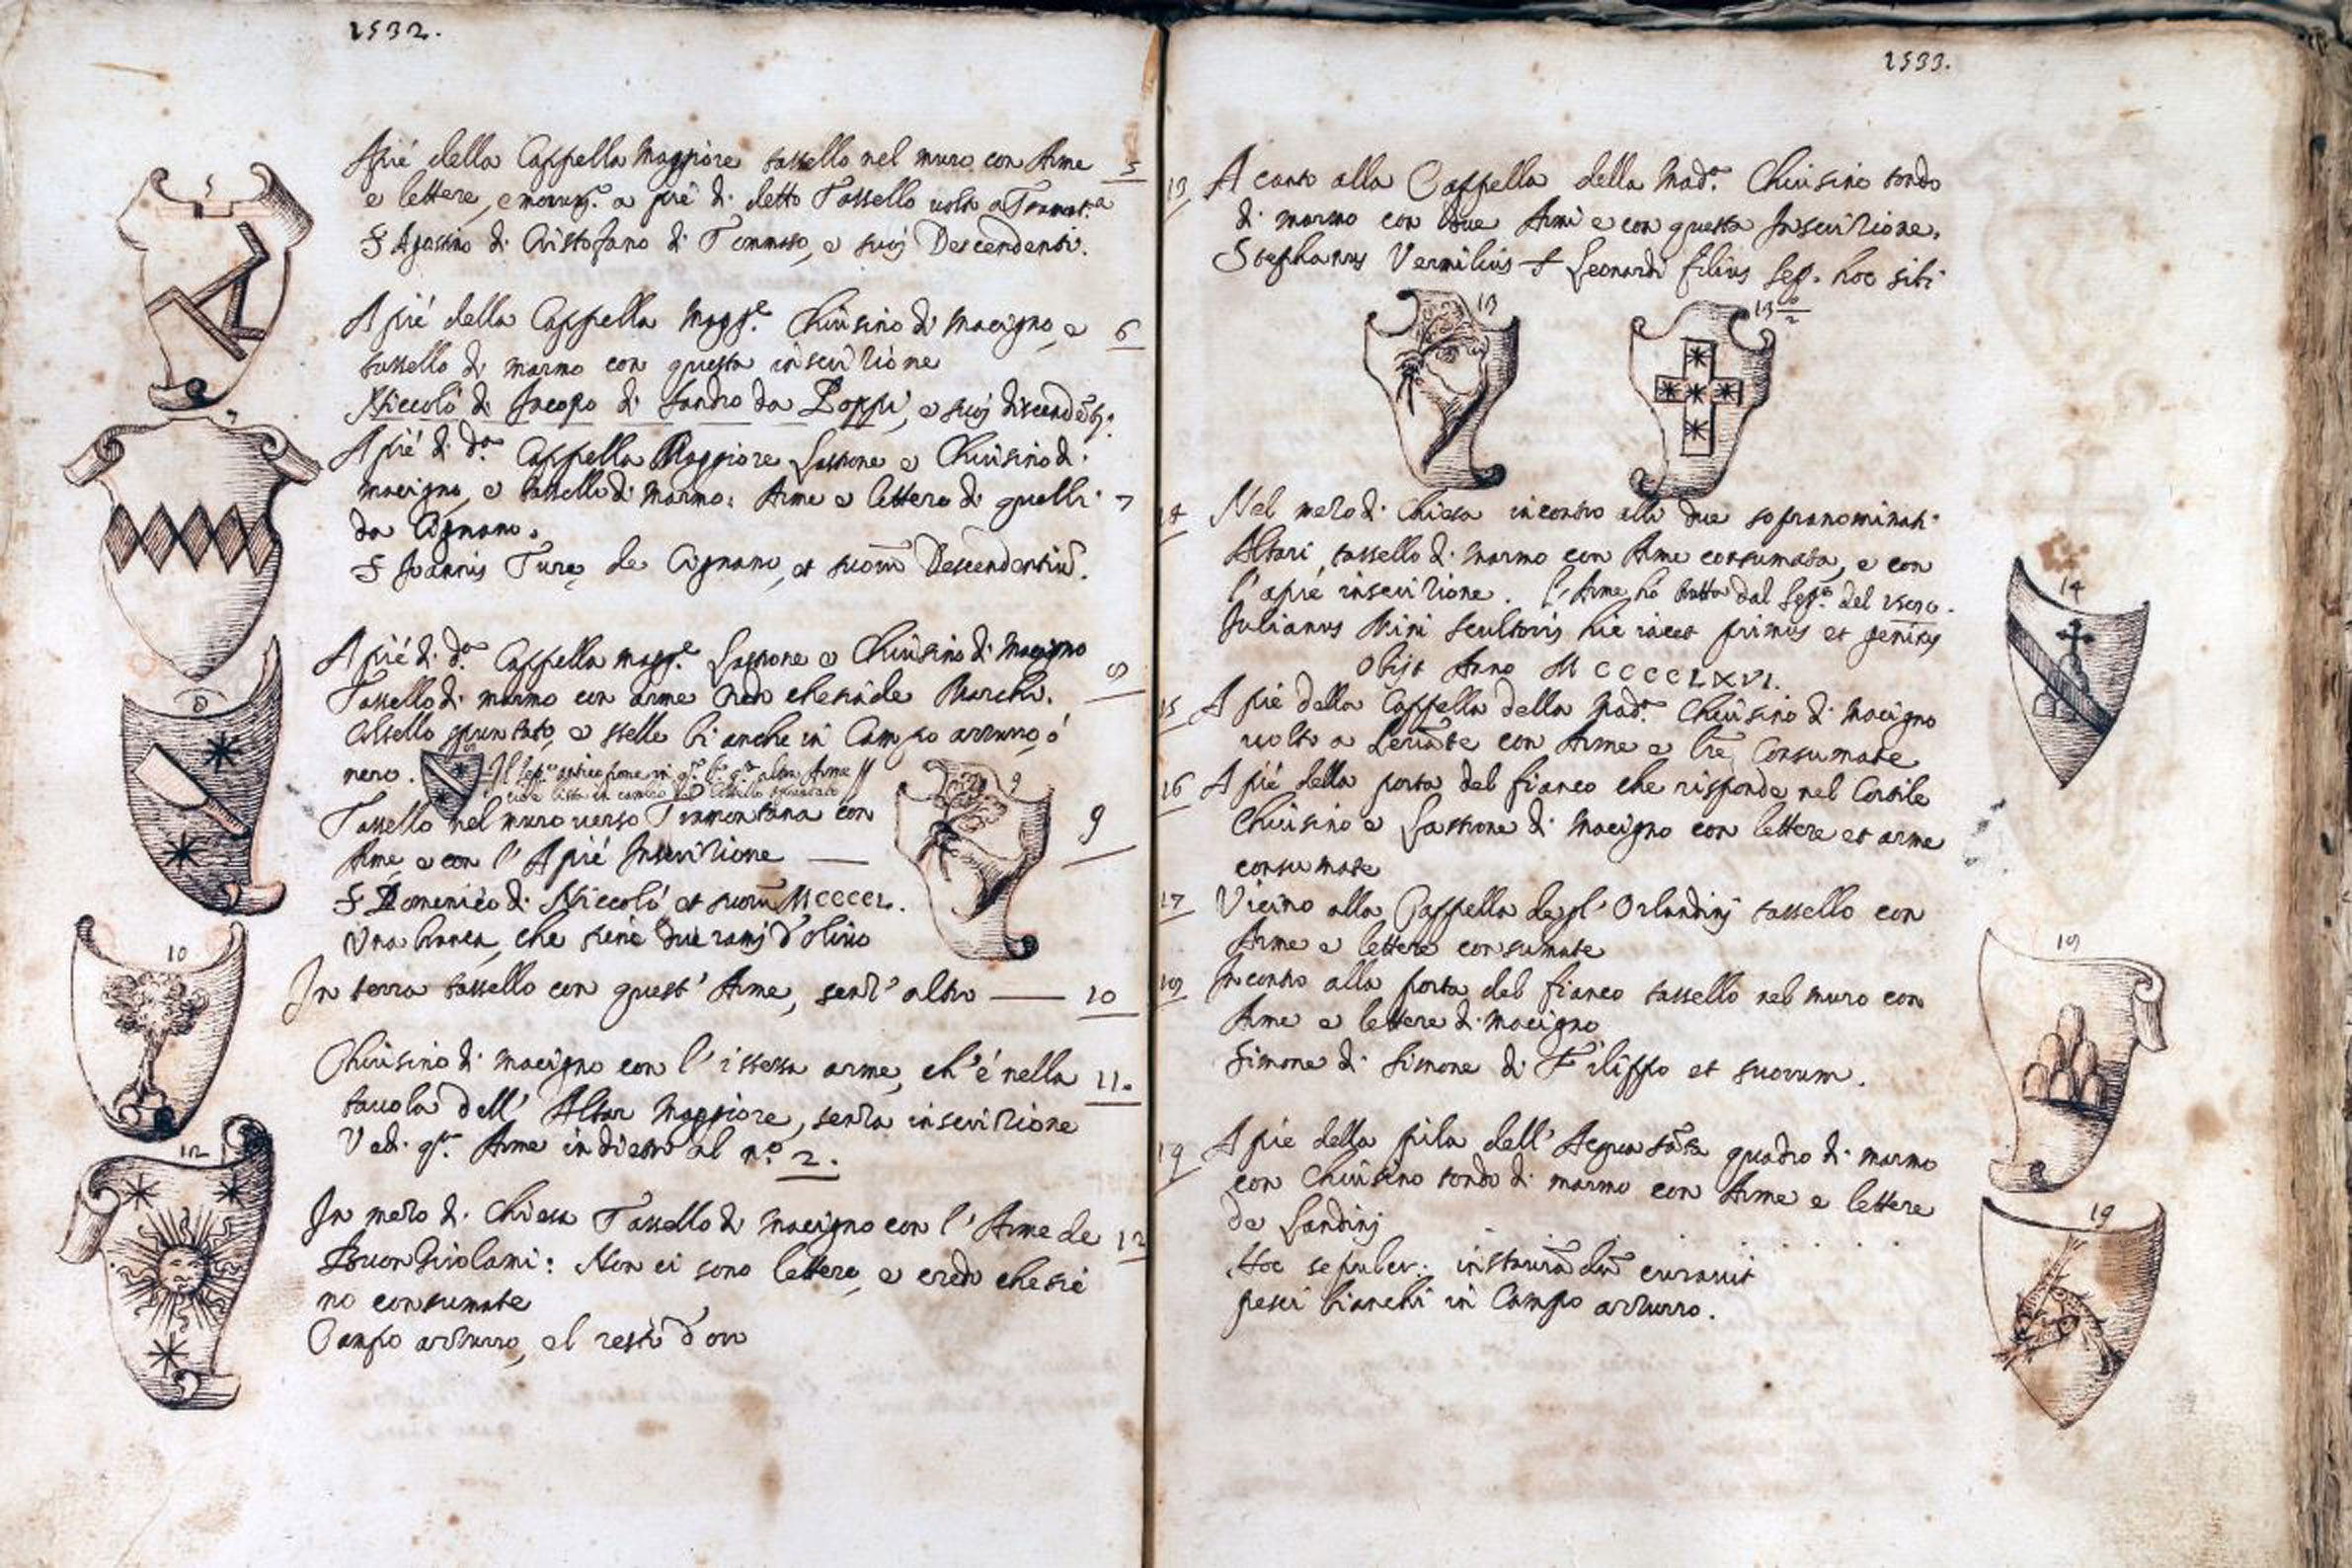 1532.
5
Apié della Cappella Maggiore tassello nel muro con Arme 5
e lettere, e a pié di detto Tassello volto a Tramont.a
S Agostino di Cristofano di Tommaso, e suoj Descendenti.
Apié della Cappella Magg.e Chiusino di macigno, e 6
tassello di marmo con questa inscrizione
Niccolò di Jacopo di Sandro da Poppi, e suoj discendēti.
7
Apié di d.a Cappella Maggiore Lastrone e Chiusino di
macigno, e tassello di marmo: Arme e lettere di quelli 7
da Cignano.
S Joannis Ture de Cignano, et suorū Descendentiū.
Apié di d.a Cappella magg.e Lastrone e Chiusino di Macigno 8
Tassello di marmo con arme credo che sia de Marchi.
8
Coltello spuntato, e stelle bianche in Campo azzurro, ó
nero.
Tassello nel muro verso Tramontana con 9
9
Arme, e con l'Apié Inscrizione
S Domenico di Niccoló et suorū MCCCCL.
Una branca, che tiene due ramj d'olivo
10
In terra tassello con quest'Arme, senz'altro 10
Chiusino di macigno con l'istessa arme, ch'é nella 11.
tavola dell'Altar Maggiore, senza inscrizione
Vedi q.a Arme indietro al n.o 2.
12
In mezo di Chiesa Tassello di macigno con l'Arme de 12
BuonGirolami: Non ci sono lettere, e credo che sie
no consumate
Campo azzurro, el resto d'oro
1533.
13 A canto alla Cappella della Mad.a Chiusino tondo
di marmo con due Armi e con questa Inscrizione.
Stephanus Vermilius Leonardi filius sep. hoc sibi
13
13 o/2
14 Nel mezo di Chiesa incontro alli due sopranominati
Altari, tassello di marmo con Arme consumata, e con
l'apié inscrizione. L'Arme ho tratto dal Sep.o del
Julianus Nini scultoris hic iacet primus et genitus
Obijt Anno MCCCCLXVI.
14
15 Apié della Cappella della Mad.a Chiusino di Macigno
volto a Levāte con Arme e Lr̄e Consumate
16 Apié della porta del fianco che risponde nel Cortile
Chiusino e Lastrone di Macigno con lettere et arme
consumate
17 Vicino alla Cappella degl'Orlandinj tassello con
Arme e lettere consumate
18 Incontro alla porta del fianco tassello nel muro con
Arme e lettere di macigno
Simone di Simone di Filippo et suorum.
18
19 Apié della pila dell'Acqua sāta quadro di marmo
con Chiusino tondo di marmo con Arme e lettere
de Landinj
19
Hoc sepulcr. instaurādū curavit
pesci bianchi in Campo azzurro.